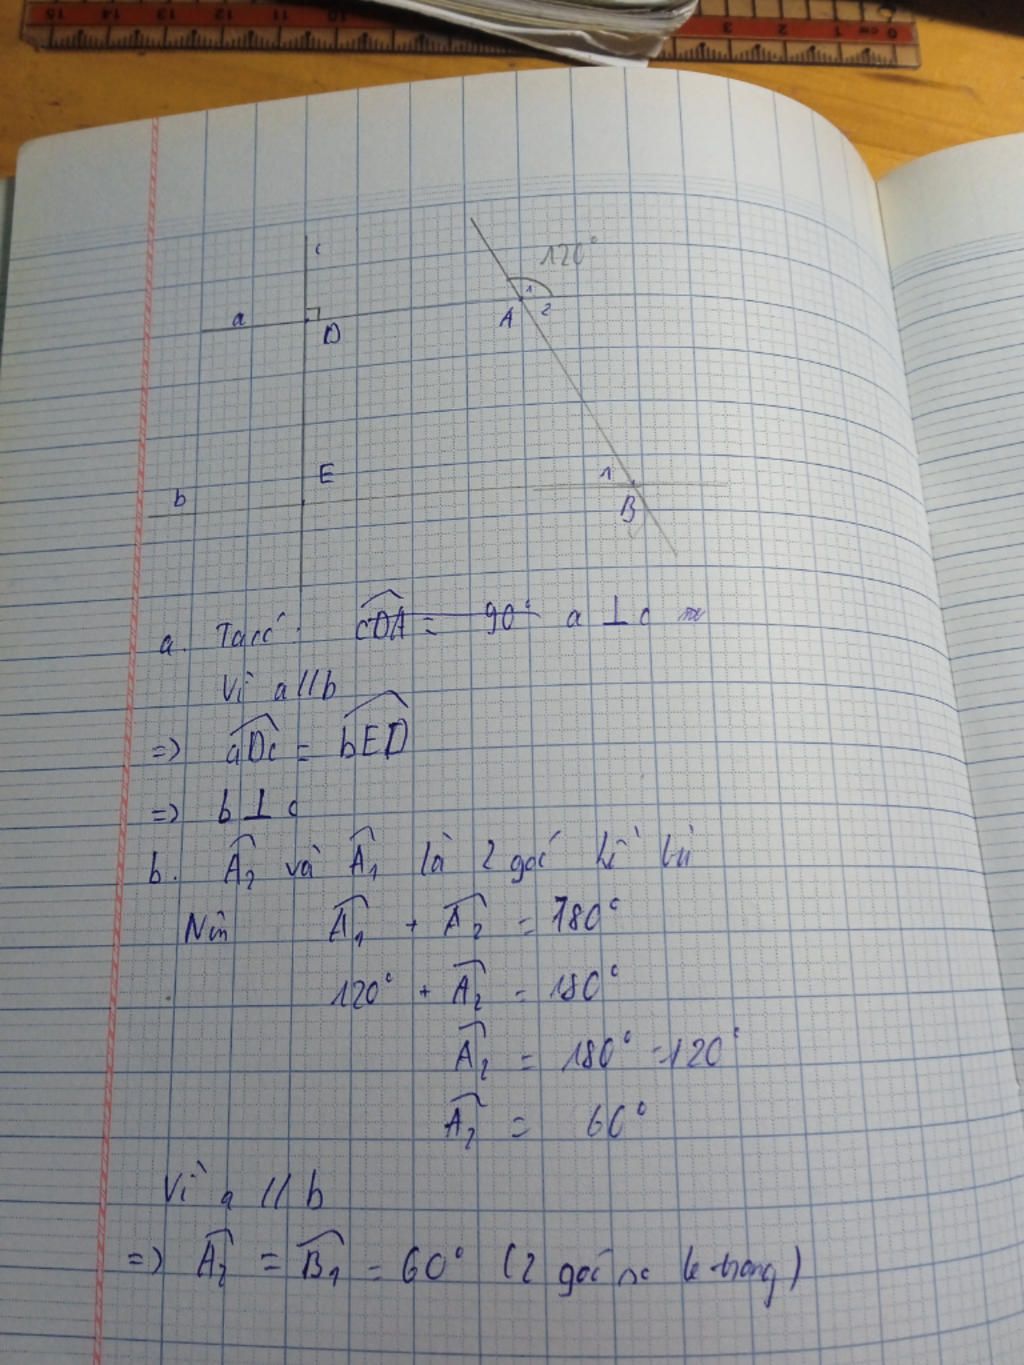 15 14 13 12 11 10 3 2 1 cm 0
c
120°
1
a
D
A
2
E
1
b
B
a. Ta có: cDA = 90° a ⊥ c
Vì a // b
=> aDc = bED
=> b ⊥ c
b. A₂ và A₁ là 2 góc kề bù
Nên A₁ + A₂ = 180°
120° + A₂ = 180°
A₂ = 180° - 120°
A₂ = 60°
Vì a // b
=> A₂ = B₁ = 60° (2 góc so le trong)